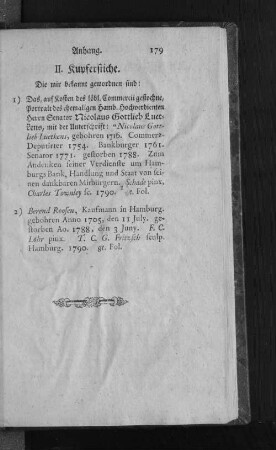 Anhang. 179
II. Kupferstiche.
Die mir bekannt geworden sind:
1) Das, auf Kosten des löbl. Commercii gestochne,
Portrait des ehemaligen Hamb. Hochverdienten
Herrn Senator Nicolaus Gottlieb Luet-
kens, mit der Unterschrift: "Nicolaus Gott-
lieb Luetkens, gebohren 1716. Commerz-
Deputirter 1754. Bankbürger 1761.
Senator 1771. gestorben 1788. Zum
Andenken seiner Verdienste um Ham-
burgs Bank, Handlung und Staat von sei-
nen dankbaren Mitbürgern. Schade pinx.
Charles Townley sc. 1790." gr. Fol.
2) Berend Roosen, Kaufmann in Hamburg.
gebohren Anno 1705, den 11 July. ge-
storben Ao. 1788, den 3 Juny. F. C.
Löhr pinx. T. C. G. Fritzsch sculp.
Hamburg. 1790. gr. Fol.